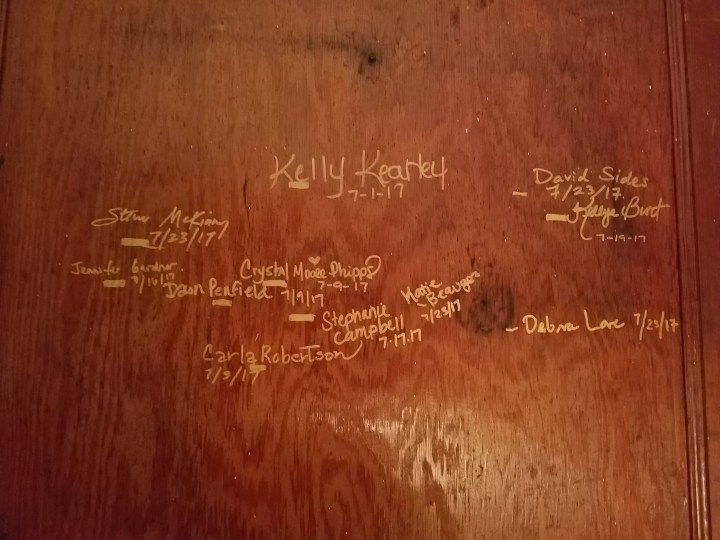 Kelly Kearley
7-1-17
David Sides
7/23/17
Burt
7-19-17
Steve McKinny
7/23/17
Jennifer Gardner
7/16/17
Crystal Moore Phipps
7-9-17
Dawn Penfield
7/9/17
Katie
Beaugez
7/23/17
Stephanie
Campbell
7.17.17
Debra Lane 7/23/17
Carla Robertson
7/3/17